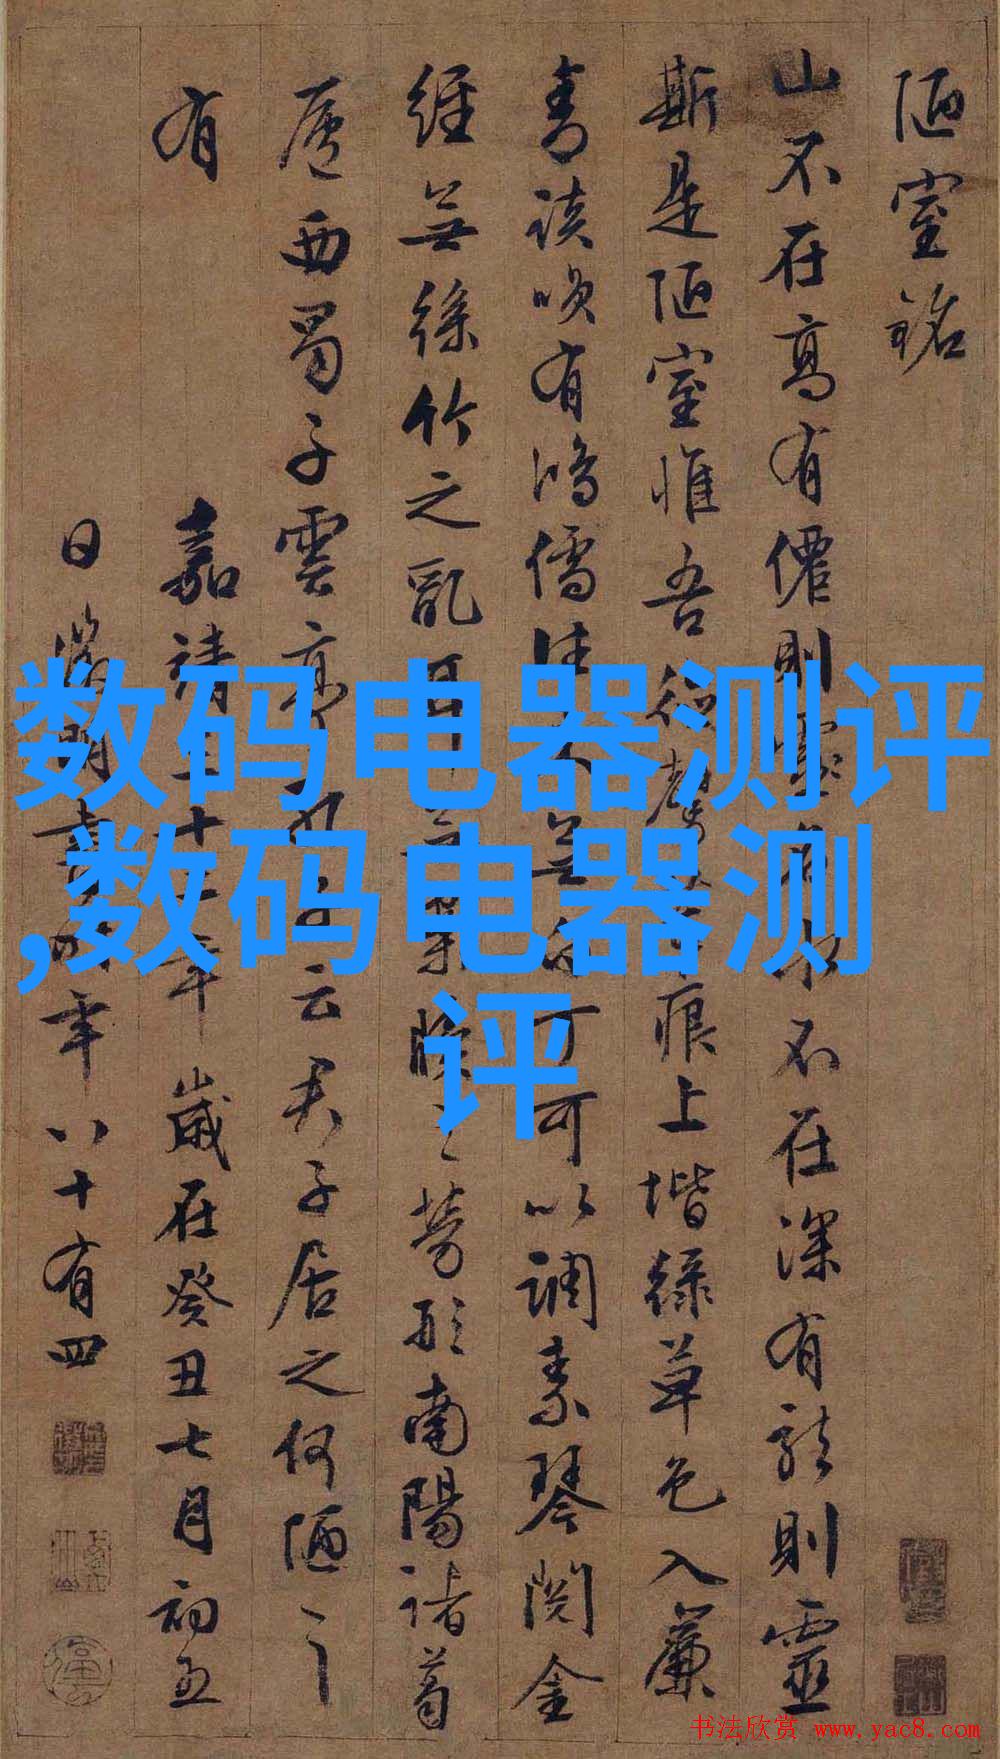 陋室銘
山不在高有僊則靈水不在深有龍則靈
斯是陋室惟吾德馨苔痕上堦綠草色入簾
青談唉有鴻儒往來無白丁可以調素琴閱金
經無絲竹之亂耳無案牘之勞形南陽諸葛
廬西蜀子雲亭孔子云君子居之何陋之
有
嘉靖三十二年歲在癸丑七月初五
日徵明書時年八十有四
数码电器测评
,数码电器测
评
书法欣赏 www.yac8.com